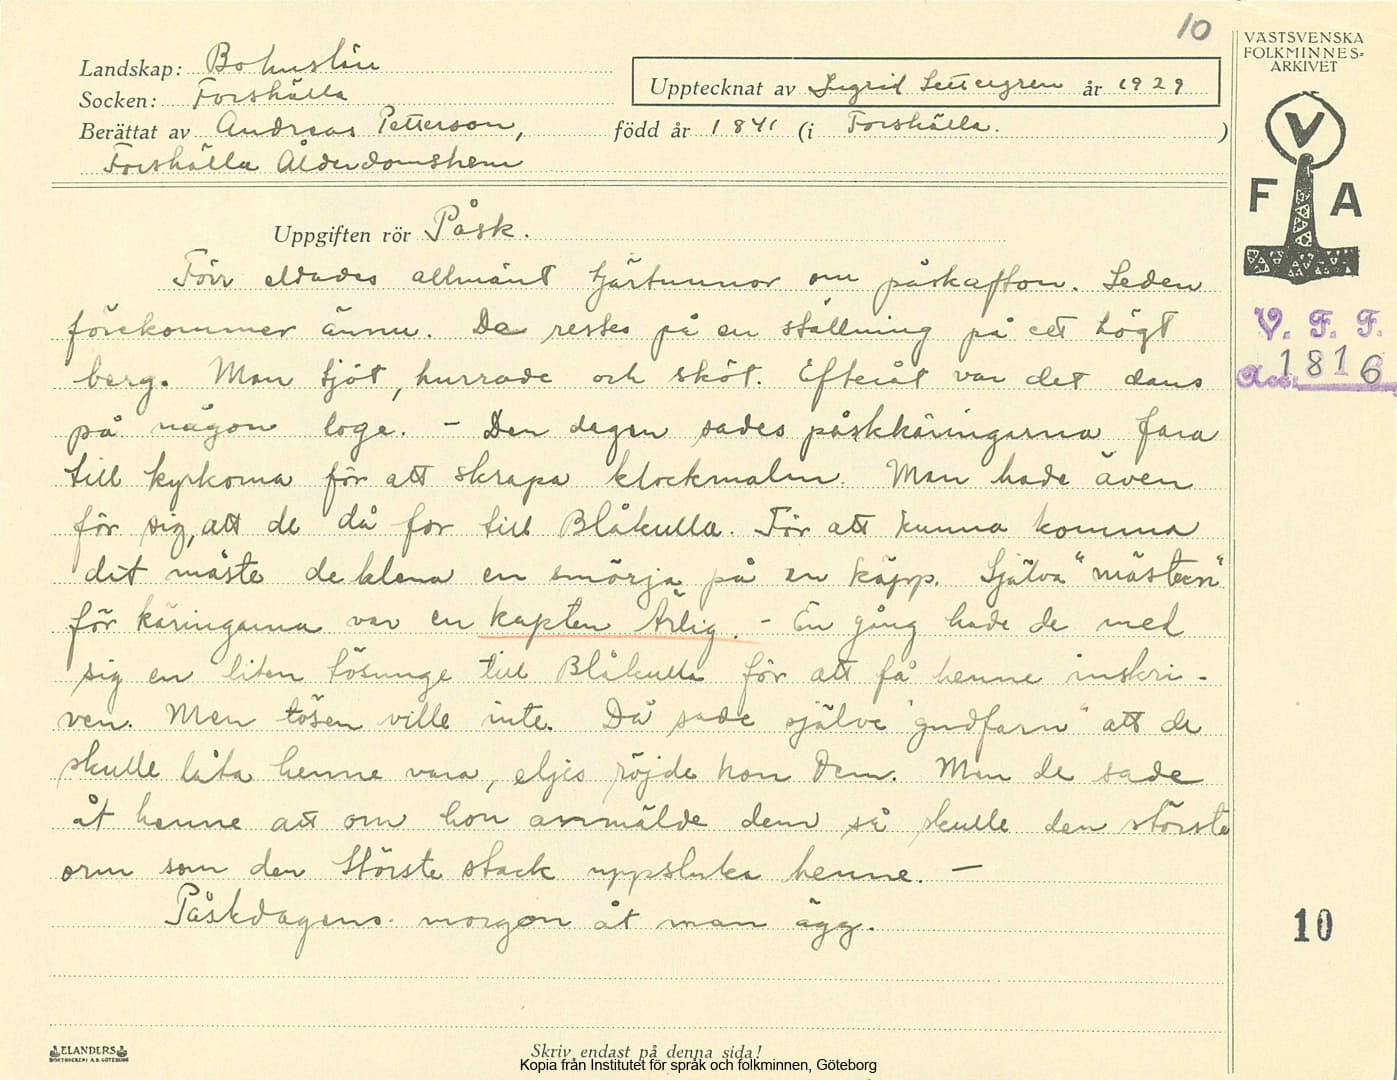 10
Landskap: Bohuslän
Socken: Forshälla
Upptecknat av Ingrid Settergren år 1929
Berättat av Andreas Petterson, född år 1841 (i Forshälla. )
Forshälla Ålderdomshem
VÄSTSVENSKA
FOLKMINNES-
ARKIVET
V
F A
V. F. F.
Acc. 1816
Uppgiften rör Påsk.
Förr eldades allmänt tjärtunnor om påskafton. Seden
förekommer ännu. De restes på en ställning på ett högt
berg. Man tjöt, hurrade och sköt. Efteråt var det dans
på någon loge. – Den dagen sades påskkäringarna fara
till kyrkorna för att skrapa klockmalm. Man hade även
för sig, att de då for till Blåkulla. För att kunna komma
dit måste de klena en smörja på en käpp. Själva "mästern"
för käringarna var en kapten Ärlig. – En gång hade de med
sig en liten tösunge till Blåkulla för att få henne inskri-
ven. Men tösen ville inte. Då sade själve "gudfarn" att de
skulle låta henne vara, eljes röjde hon dem. Men de sade
åt henne att om hon anmälde dem så skulle den störste
orm som den störste stack uppsluka henne. –
Påskdagens morgon åt man ägg.
10
ELANDERS
BOKTRYCKERI A.B. GÖTEBORG
Skriv endast på denna sida!
Kopia från Institutet för språk och folkminnen, Göteborg